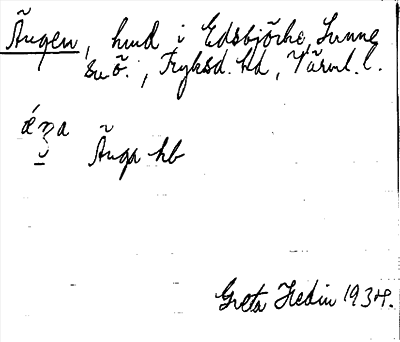 Ängen, hmd i Edsbjörke, Sunne
sn ö., Fryksd. hd, Värml. l.
Änga hb
Greta Hedin 1934.